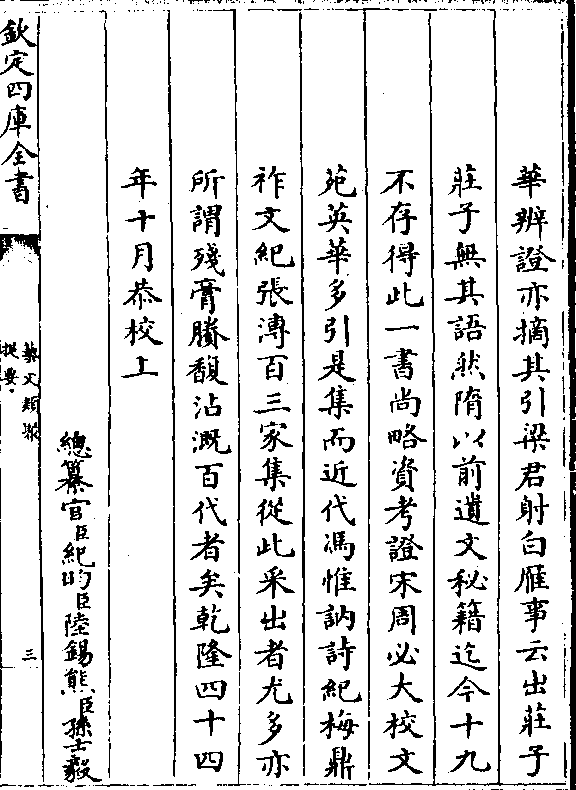 華辨證亦摘其引梁君射白雁事云出莊子
莊子無其語然隋以前遺文秘籍迄今十九
不存得此一書尚略資考證宋周必大校文
苑英華多引是集而近代馮惟訥詩紀梅鼎
祚文紀張溥百三家集從此采出者尤多亦
所謂殘膏賸馥沾溉百代者矣乾隆四十四
年十月恭校上
總纂官臣紀昀臣陸錫熊臣孫士毅
欽定四庫全書
藝文類聚
提要
三